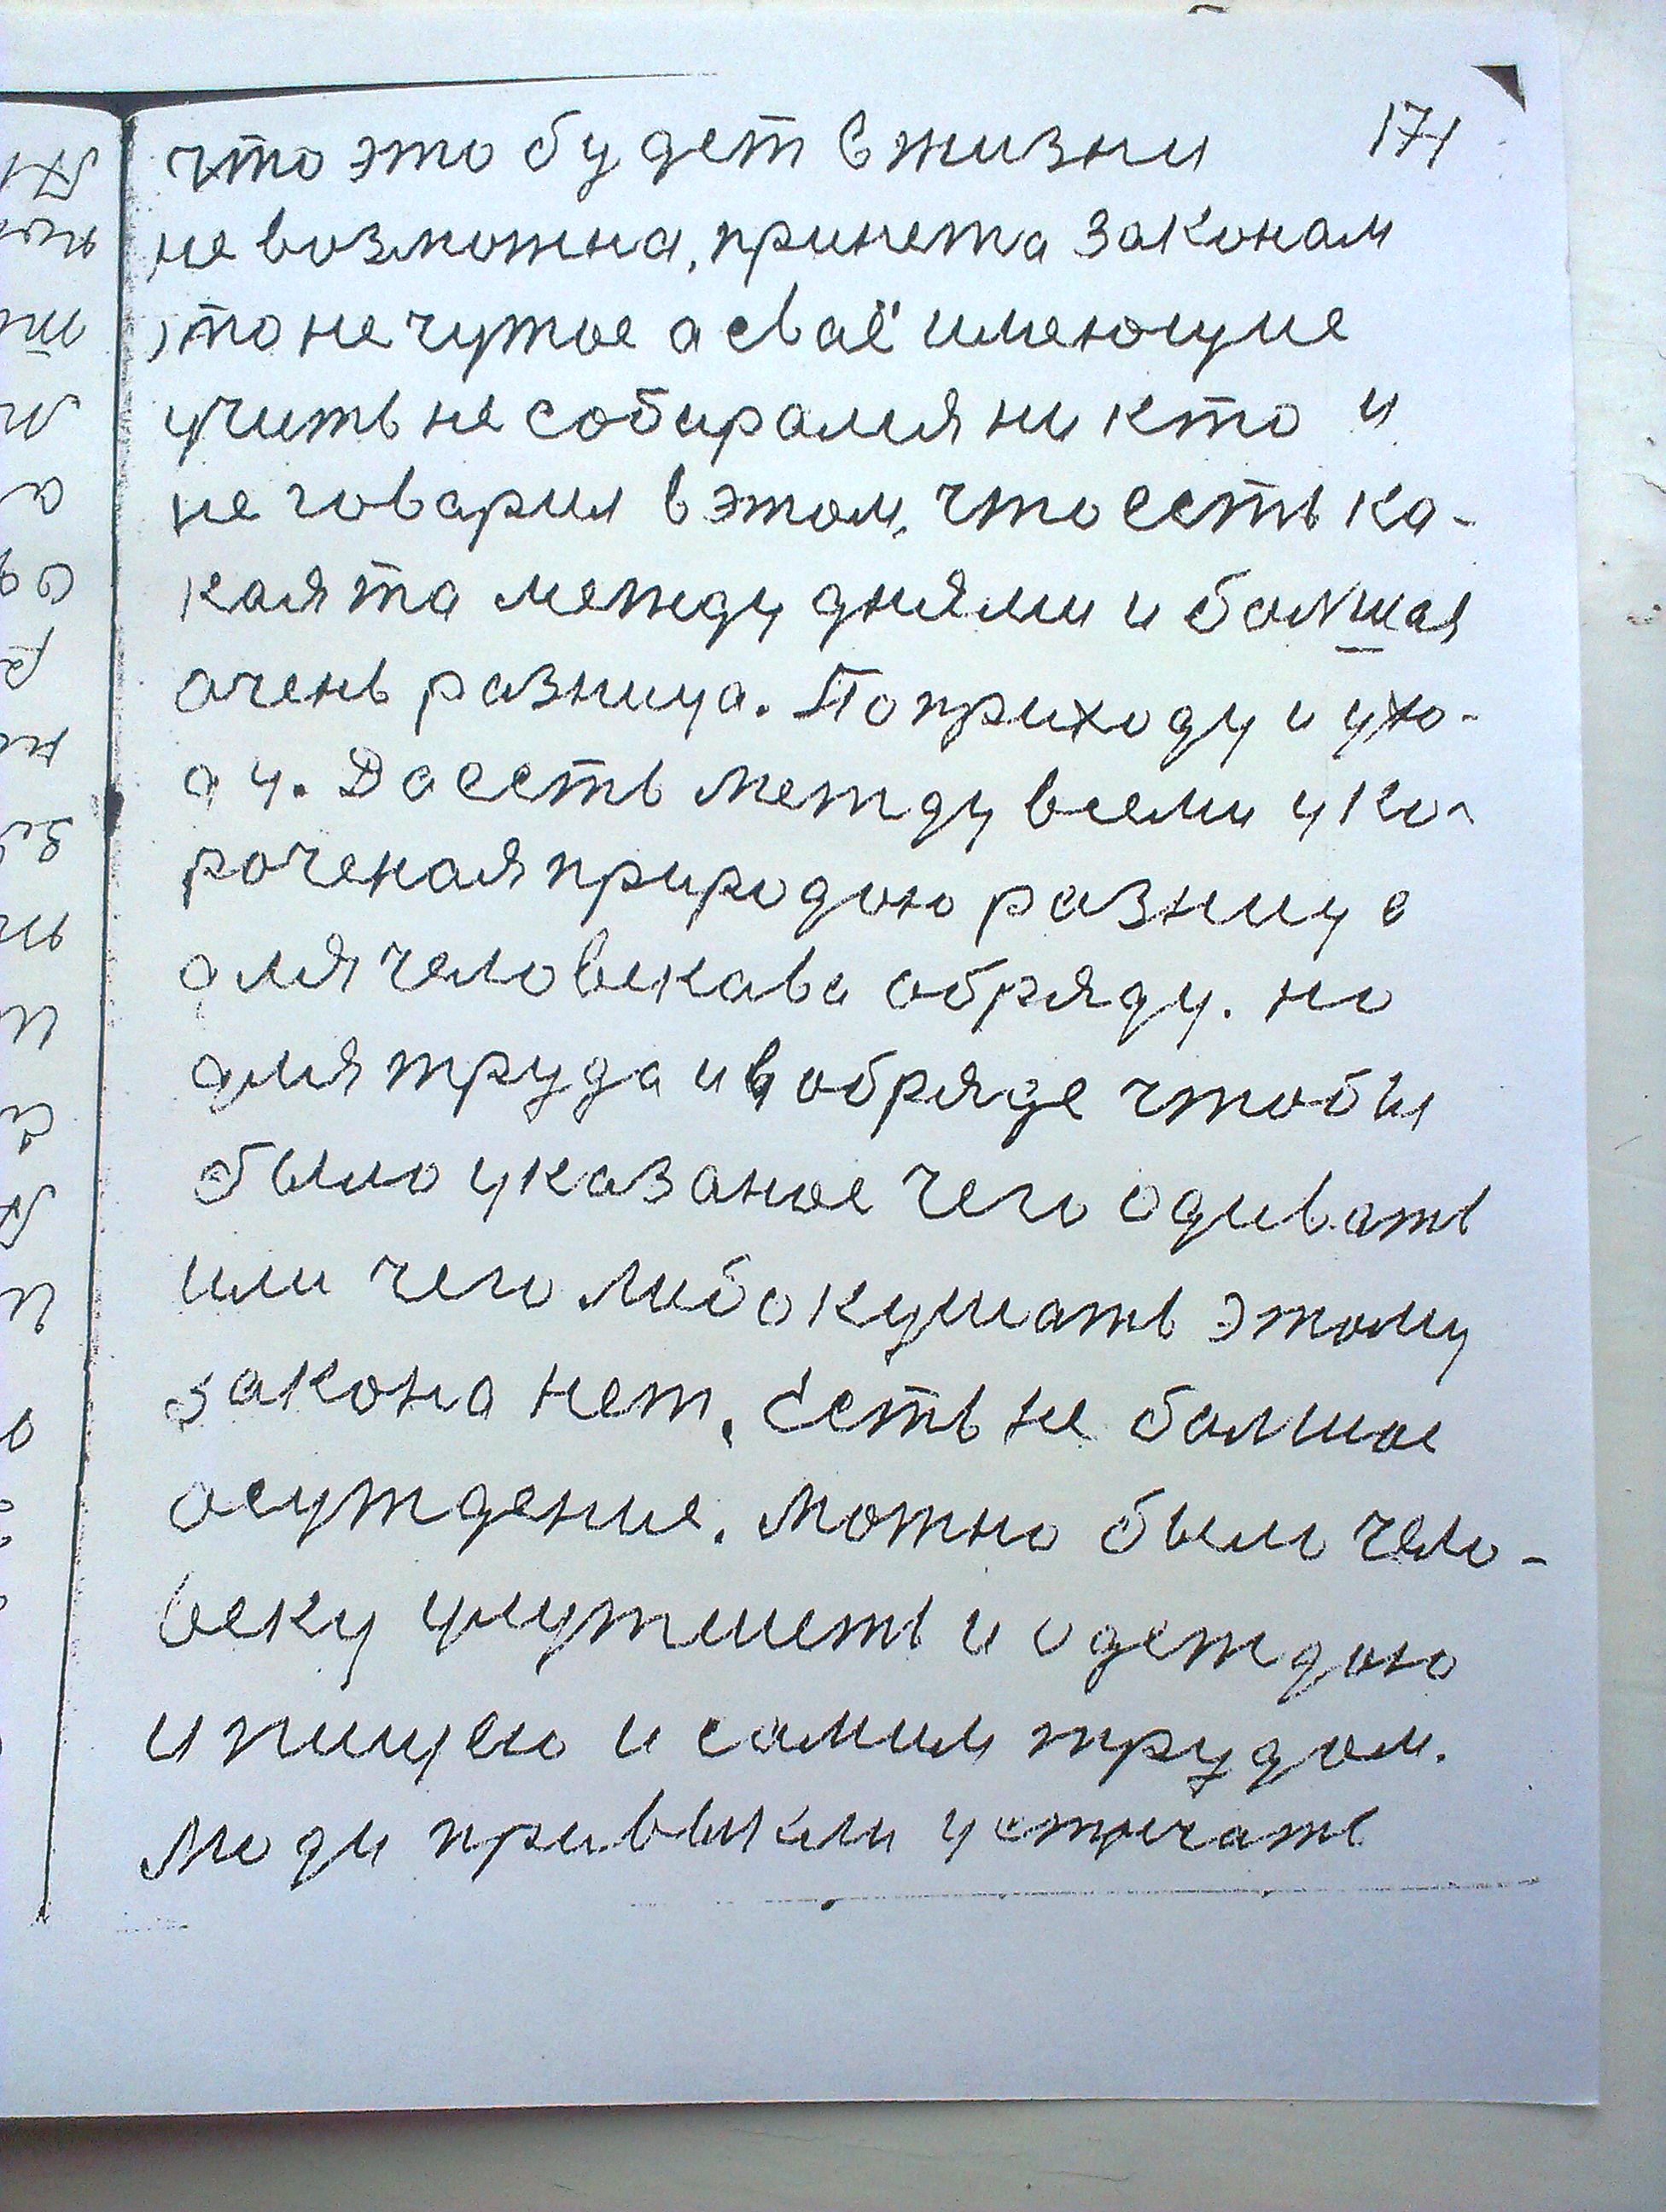 что это будет в жизни 171
не возможна, принета законам
это не чужое а сваё имеющие
учить не собирался ни кто и
не говарил в этом, что есть ка-
кая та между днями и болшая
очень разница. По приходу и ухо-
ду. Да есть между всеми уко-
роченая природою разница
для человекава обряду. но
для труда и в обряде чтобы
было указаное чего одивать
или чего либо кушать этому
закона нет, Есть не болшое
осуждение. можно было чело-
веку улутшить и одеждою
и пищею и самим трудом.
Люди привыкли устречать